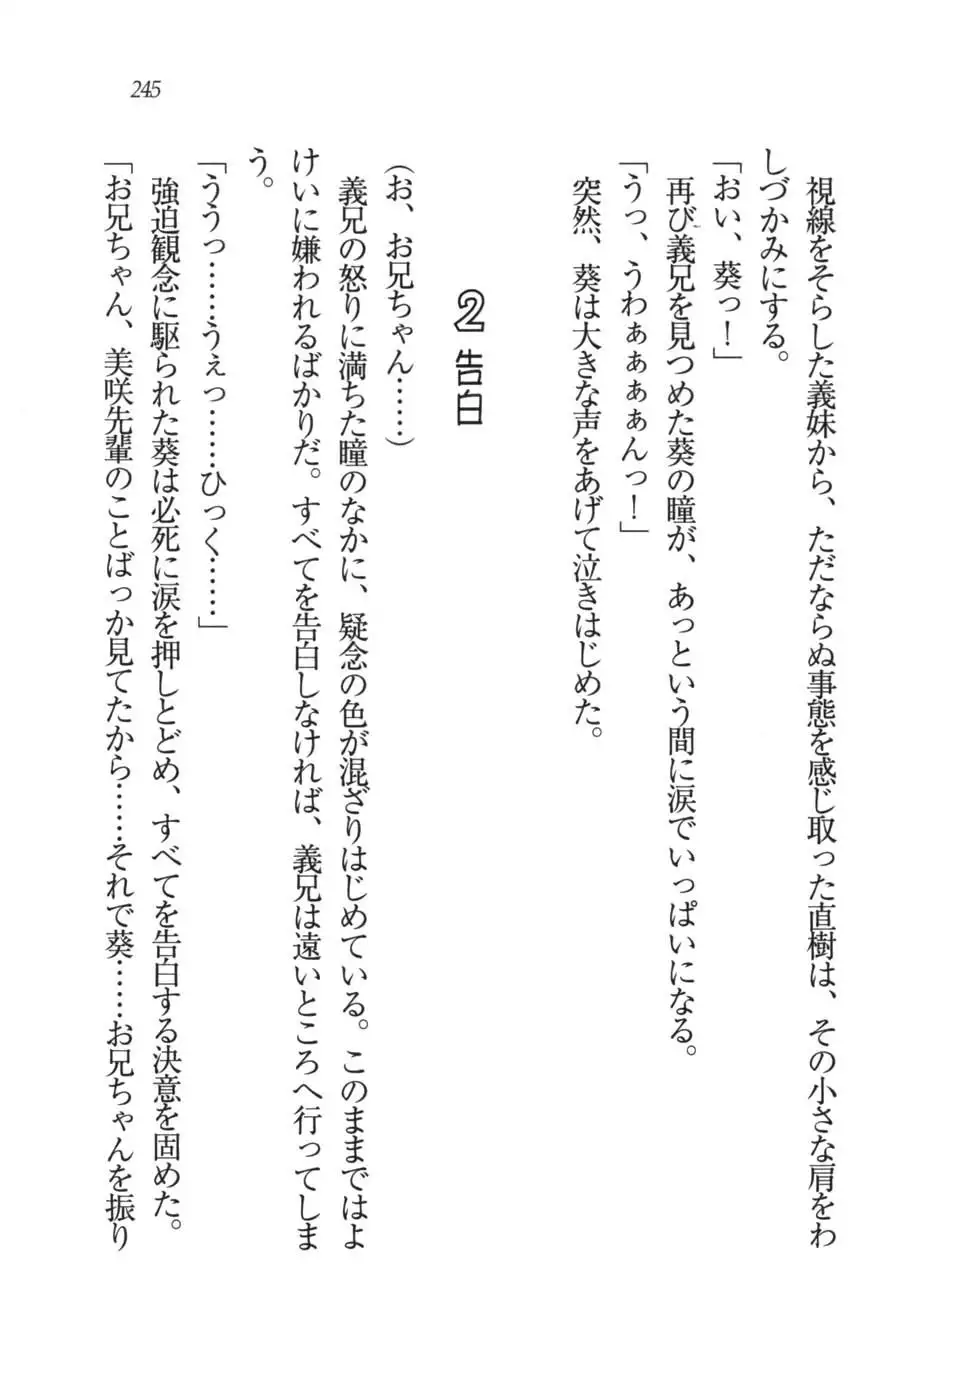 245
視線をそらした義妹から、ただならぬ事態を感じ取った直樹は、その小さな肩をわ
しづかみにする。
「おい、葵っ！」
再び義兄を見つめた葵の瞳が、あっという間に涙でいっぱいになる。
「うっ、うわぁぁぁぁんっ！」
突然、葵は大きな声をあげて泣きはじめた。
2 告白
（お、お兄ちゃん……）
義兄の怒りに満ちた瞳のなかに、疑念の色が混ざりはじめている。このままではよ
けいに嫌われるばかりだ。すべてを告白しなければ、義兄は遠いところへ行ってしま
う。
「ううっ……うぇっ……ひっく……」
強迫観念に駆られた葵は必死に涙を押しとどめ、すべてを告白する決意を固めた。
「お兄ちゃん、美咲先輩のことばっか見てたから……それで葵……お兄ちゃんを振り